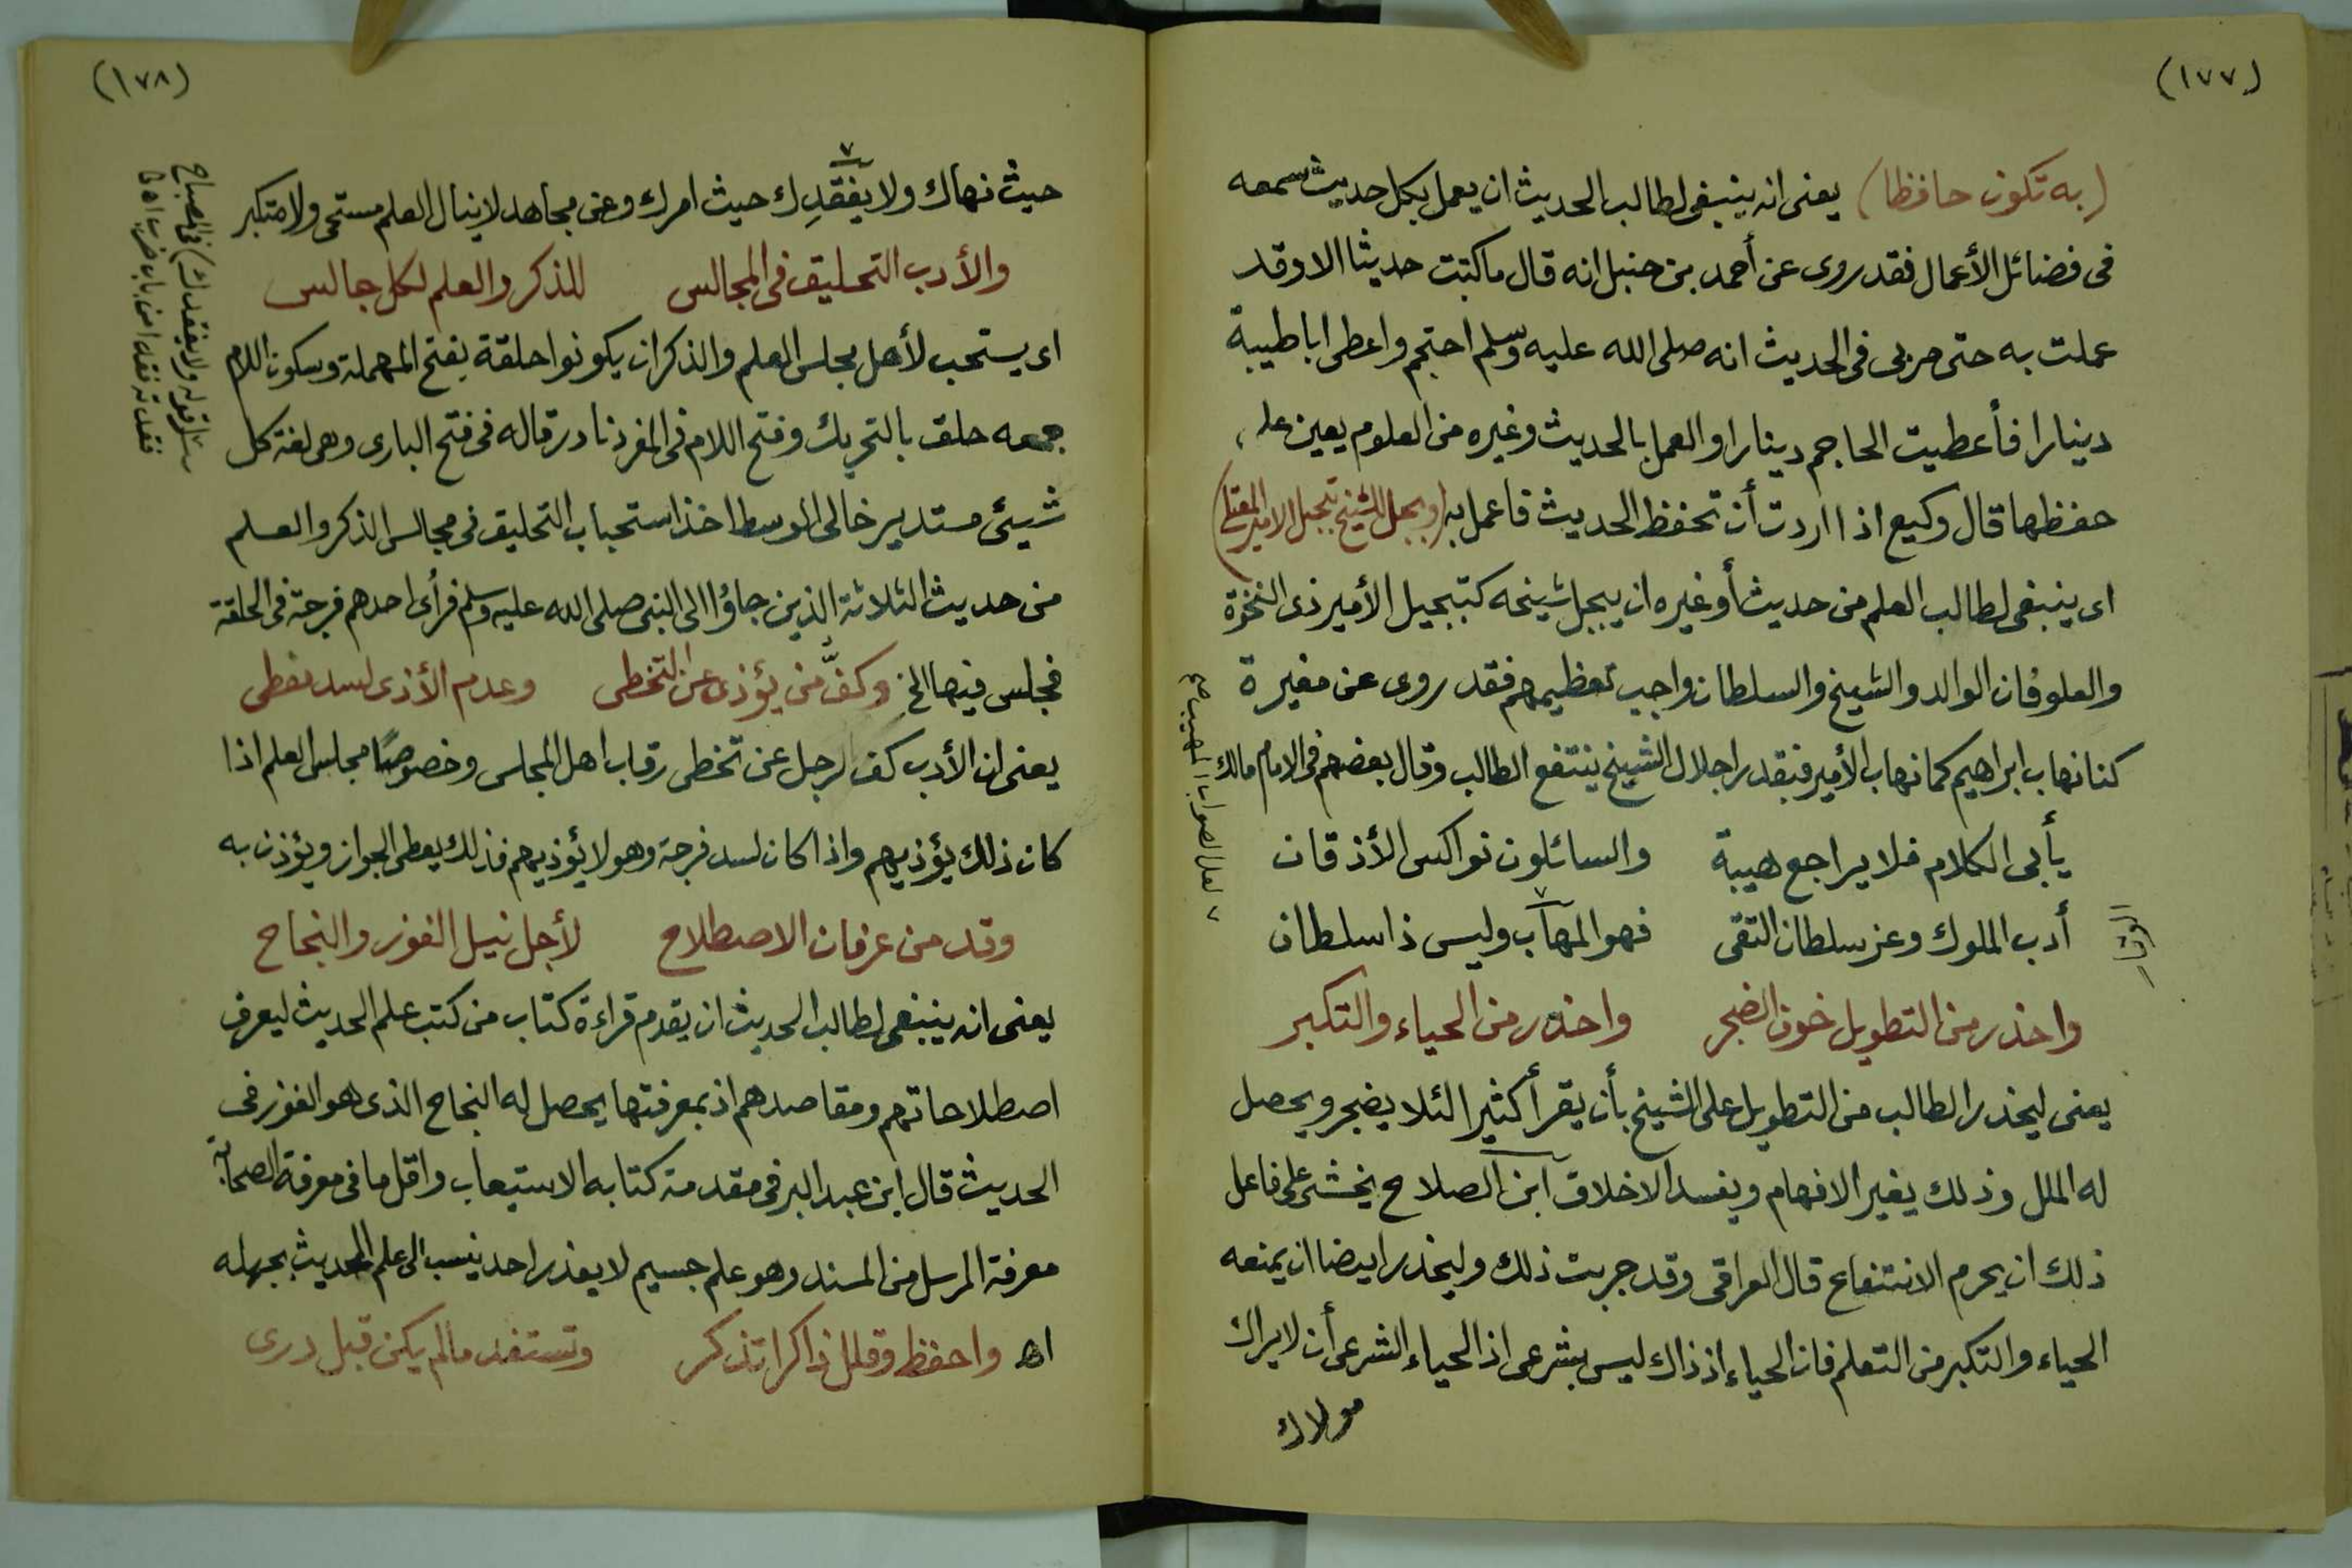 (١٧٧)
(به تكون حافظا) يعنى انه ينبغى لطالب الحديث ان يعمل بكل حديث سمعه
فى فضائل الأعمال فقد روى عن أحمد بن حنبل انه قال ما كتبت حديثا الا وقد
عملت به حتى مر بى فى الحديث انه صلى الله عليه وسلم احتجم واعطى ابا طيبة
دينارا فأعطيت الحاجم دينارا والعمل بالحديث وغيره من العلوم يعين على
حفظها قال وكيع اذا اردت أن تحفظ الحديث فاعمل به (وبجل الشيخ تبجل الامير المعتلى)
اى ينبغى لطالب العلم من حديث أو غيره ان يبجل شيخه كتبجيل الأمير ذى النخوة
والعلو فان الوالد والشيخ والسلطان واجب تعظيمهم فقد روى عن مغيرة
كنا نهاب ابراهيم كما نهاب الأمير فبقدر اجلال الشيخ ينتفع الطالب وقال بعضهم فى الامام مالك
يأبى الكلام فلا يراجع هيبة والسائلون نواكس الأذقان
أدب الملوك وعز سلطان التقى فهو المهاب وليس ذا سلطان
الوقار
٧ لعل الصواب المهيب صح
واحذر من التطويل خوف الضجر واحذر من الحياء والتكبر
يعنى ليحذر الطالب من التطويل على الشيخ بأن يقرأ كثيرا لئلا يضجر ويحصل
له الملل وذلك يغير الافهام ويفسد الاخلاق ابن الصلاح يخشى على فاعل
ذلك ان يحرم الانتفاع قال العراقى وقد جربت ذلك وليحذر ايضا ان يمنعه
الحياء والتكبر من التعلم فان الحياء اذ ذاك ليس بشرعى اذ الحياء الشرعى أن لا يراك
مولاك
(١٧٨)
حيث نهاك ولا يفقدك حيث امرك وعن مجاهد لا ينال العلم مستحى ولا متكبر
والأدب التحليق فى المجالس للذكر والعلم لكل جالس
اى يستحب لأهل مجلس العلم والذكر ان يكونوا حلقة بفتح المهملة وسكون اللام
جمعه حلق بالتحريك وفتح اللام فى المفرد نادر قاله فى فتح البارى وهى لغة كل
شيئ مستدير خالى الوسط اخذ استحباب التحليق فى مجالس الذكر والعلم
من حديث الثلاثة الذين جاؤا الى النبى صلى الله عليه وسلم فرأى احدهم فرجة فى الحلقة
فجلس فيها الخ وكف من يؤذى عن التخطى وعدم الأذى لسد معطى
يعنى ان الأدب كف الرجل عن تخطى رقاب اهل المجلس وخصوصا مجلس العلم اذا
كان ذلك يؤذيهم واذا كان لسد فرجة وهو لا يؤذيهم فذلك يعطى الجواز ويؤذن به
وقد من عرفان الاصطلاح لأجل نيل الفوز والنجاح
يعنى انه ينبغى لطالب الحديث ان يقدم قراءة كتاب من كتب علم الحديث ليعرف
اصطلاحاتهم ومقاصدهم اذ بمعرفتها يحصل له النجاح الذى هو الفوز فى
الحديث قال ابن عبد البر فى مقدمة كتابه الاستيعاب واقل ما فى معرفة الصحابة
معرفة المرسل من المسند وهو علم جسيم لا يعذر احد ينسب الى علم الحديث بجهله
اه واحفظ وقلل ذاكرا تذكر وتستفد ما لم يكن قبل درى
قوله ولا يفقدك) فى المصباح
فقدته فقدا من باب ضرب اه